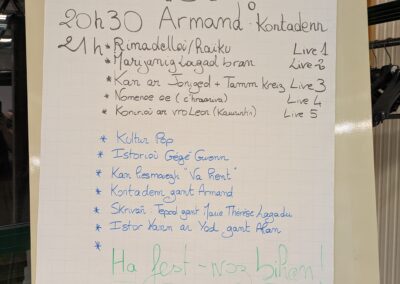 20h30 Armand : Kontadenn
21h * Rimadelloù/Raiku Live 1
* Maryanig Lagad bran Live 2
* Kan ar Jorjed + Tamm kreiz Live 3
* Nomenoe oe (c'hraouva) Live 4
* ar vro Leon (Kaourintin) Live 5
* Kultur Pop
* Istorioù Gégé Gwenn
* Kan "Va Rient"
* Kontadenn gant Armand
* Skrivañ - Tepod gant Marie Thérèse Lagadu
* Istor Yann ar Yod gant Alan
*
Ha fest-noz bihan !